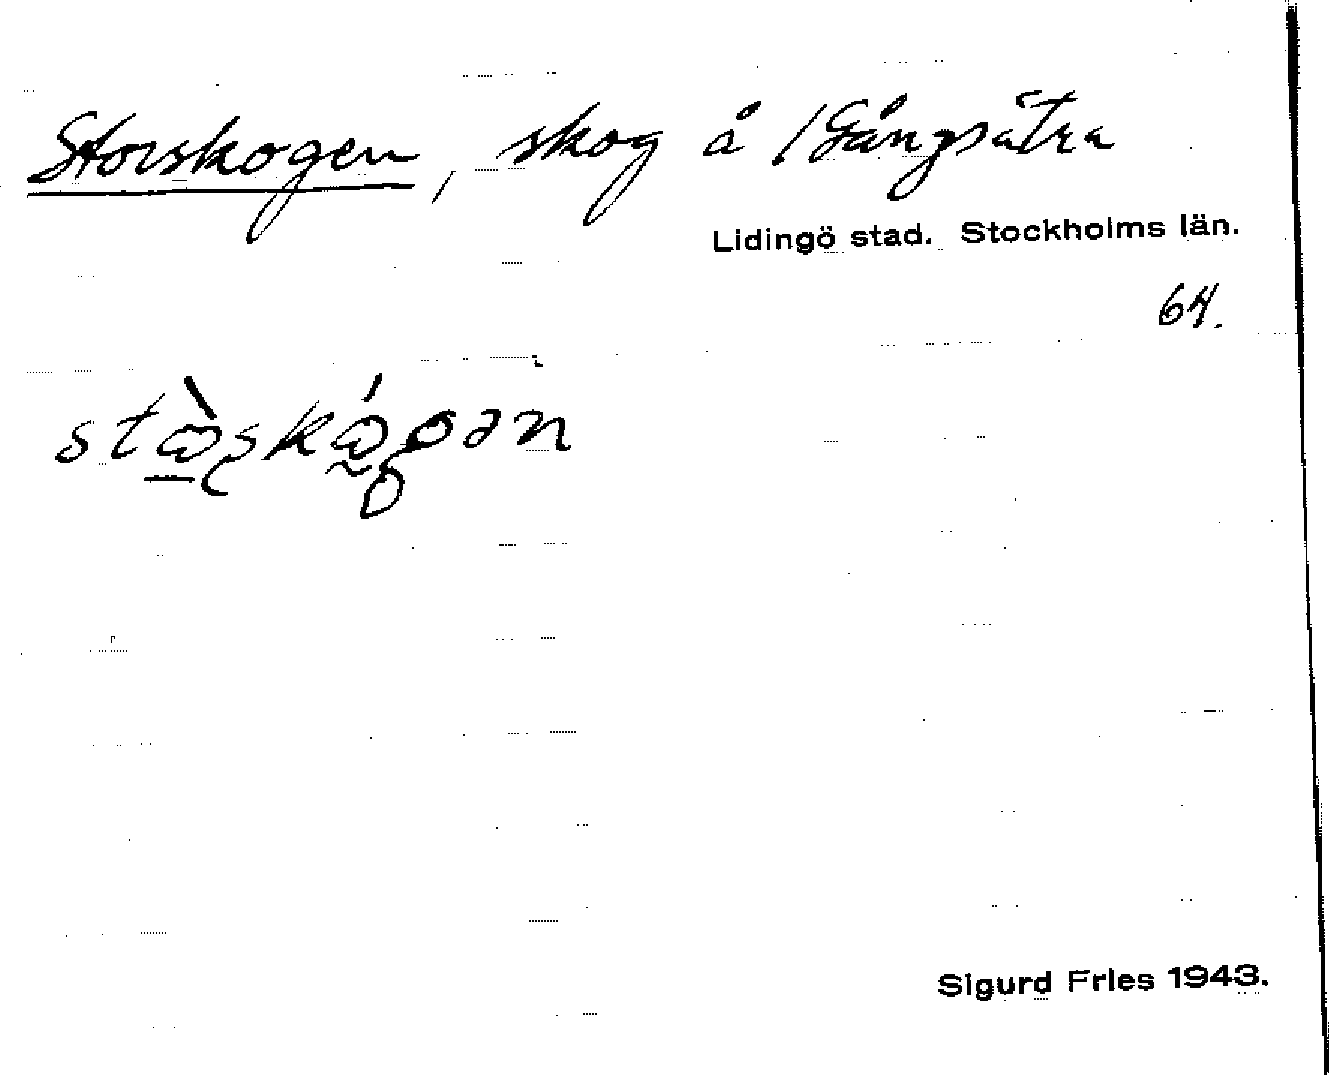 Storskogen, skog å /Gångsätra
Lidingö stad. Stockholms län.
64.
Sigurd Fries 1943.